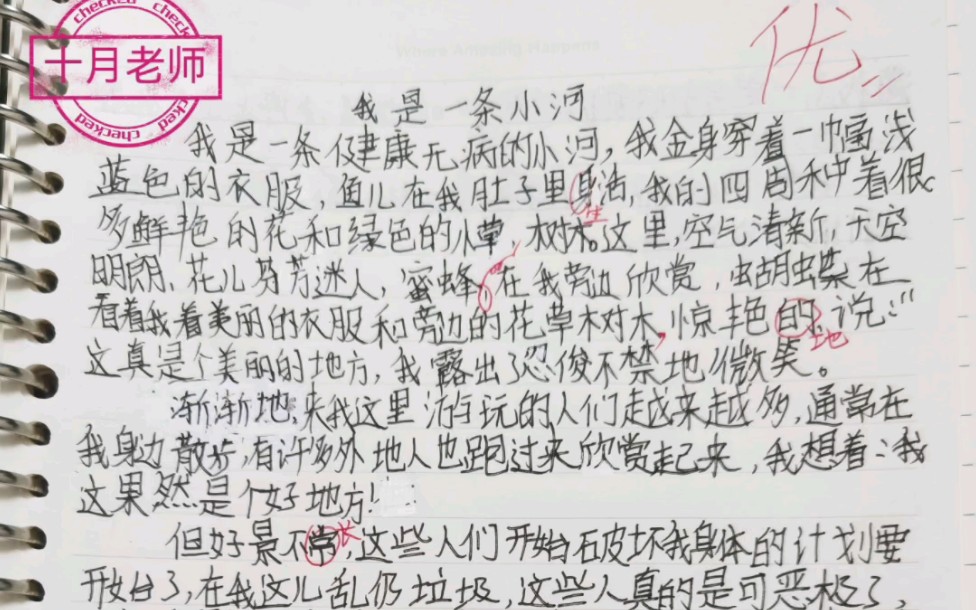 checked checked
十月老师
checked
优
我是一条小河
我是一条健康无病的小河，我全身穿着一幅浅
蓝色的衣服，鱼儿在我肚子里身活，我的四周种着很
生
多鲜艳的花和绿色的小草，树木。这里，空气清新，天空
明朗，花儿芬芳迷人，蜜蜂，在我旁边欣赏，蝴蝶在
看着我着美丽的衣服和旁边的花草树木，惊艳的说：“
地
这真是个美丽的地方，我露出了忍俊不禁地微笑。
渐渐地，来我这里游玩的人们走越来越多，通常在
我身边散步，有许多外地人也跑过来欣赏起来，我想着：我
这果然是个好地方！
但好景不常，这些人们开始破坏我身体的计划要
长
开始了，在我这儿乱扔垃圾，这些人真的是可恶极了，